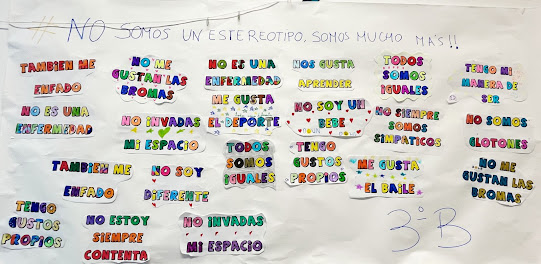 # NO SOMOS UN ESTEREOTIPO, SOMOS MUCHO MÁS!!
TAMBIEN ME
ENFADO
NO ME
GUSTAN LAS
BROMAS
NO ES UNA
ENFERMEDAD
NOS GUSTA
APRENDER
TODOS
SOMOS
IGUALES
TENGO MI
MANERA DE
SER
NO ES UNA
ENFERMEDAD
NO INVADAS
MI ESPACIO
ME GUSTA
EL DEPORTE
NO SOY UN
BEBE
NO SIEMPRE
SOMOS
SIMPATICOS
NO SOMOS
GLOTONES
TAMBIEN ME
ENFADO
NO SOY
DIFERENTE
TODOS
SOMOS
IGUALES
TENGO
GUSTOS
PROPIOS
ME GUSTA
EL BAILE
NO ME
GUSTAN LAS
BROMAS
TENGO
GUSTOS
PROPIOS
NO ESTOY
SIEMPRE
CONTENTA
NO INVADAS
MI ESPACIO
3º B